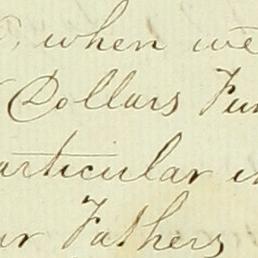 , when we
Dollars Fun
articular i
ur Fathers